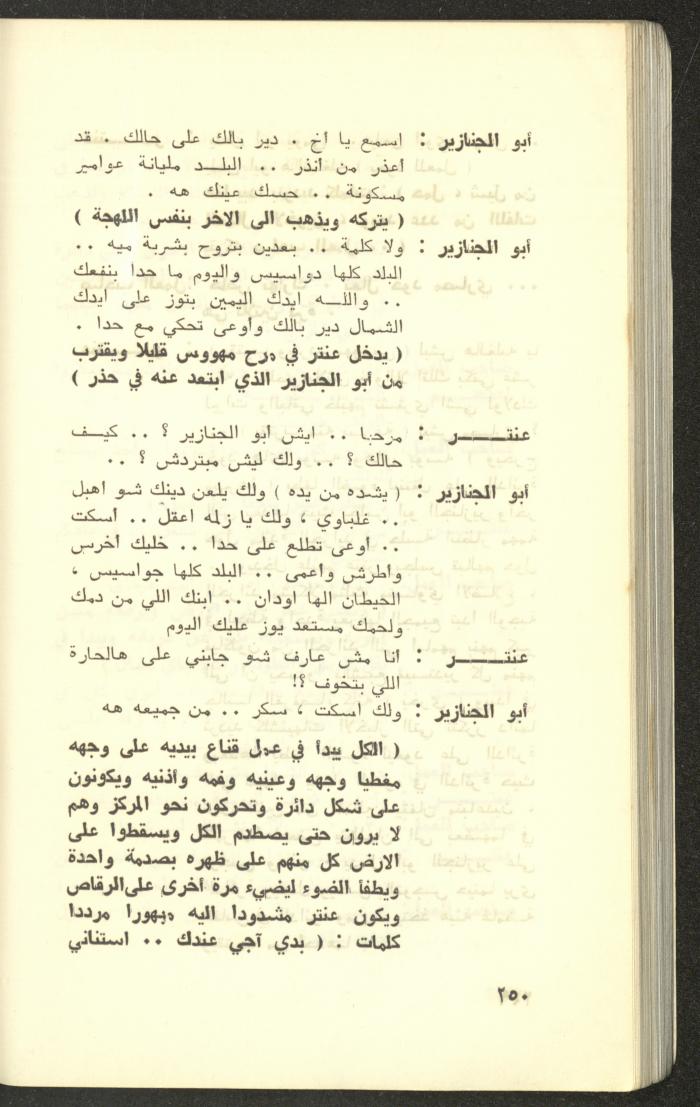 أبو الجنازير : اسمع يا أخ . دير بالك على حالك . قد
أعذر من انذر .. البلـــد مليانة عوامير
مسكونة .. حسك عينك هه .
( يتركه ويذهب الى الاخر بنفس اللهجة )
أبو الجنازير : ولا كلمة .. بعدين بتروح بشربة ميه ..
البلد كلها دواسيس واليوم ما حدا بنفعك
.. واللـــه ايدك اليمين بتوز على ايدك
الشمال دير بالك وأوعى تحكي مع حدا .
( يدخل عنتر في مرح مهووس قليلا ويقترب
من أبو الجنازير الذي ابتعد عنه في حذر )
عنتــــــــر : مرحبا .. ايش ابو الجنازير ؟ .. كيــف
حالك ؟ .. ولك ليش مبتردش ؟ ..
أبو الجنازير : ( يشده من يده ) ولك يلعن دينك شو اهبل
.. غلباوي ، ولك يا زلمه اعقل .. أسكت
.. أوعى تطلع على حدا .. خليك أخرس
واطرش وأعمى .. البلد كلها جواسيس ،
الحيطان الها اودان .. ابنك اللي من دمك
ولحمك مستعد يوز عليك اليوم
عنتــــــــر : أنا مش عارف شو جابني على هالحارة
اللي بتخوف ؟!
أبو الجنازير : ولك اسكت ، سكر .. من جميعه هه
( الكل يبدأ في عمل قناع بيديه على وجهه
مغطيا وجهه وعينيه وفمه وأذنيه ويكونون
على شكل دائرة وتحركون نحو المركز وهم
لا يرون حتى يصطدم الكل ويسقطوا على
الارض كل منهم على ظهره بصدمة واحدة
ويطفأ الضوء ليضيء مرة أخرى على الرقاص
ويكون عنتر مشدودا اليه مبهورا مرددا
كلمات : ( بدي آجي عندك .. استناني
٢٥٠